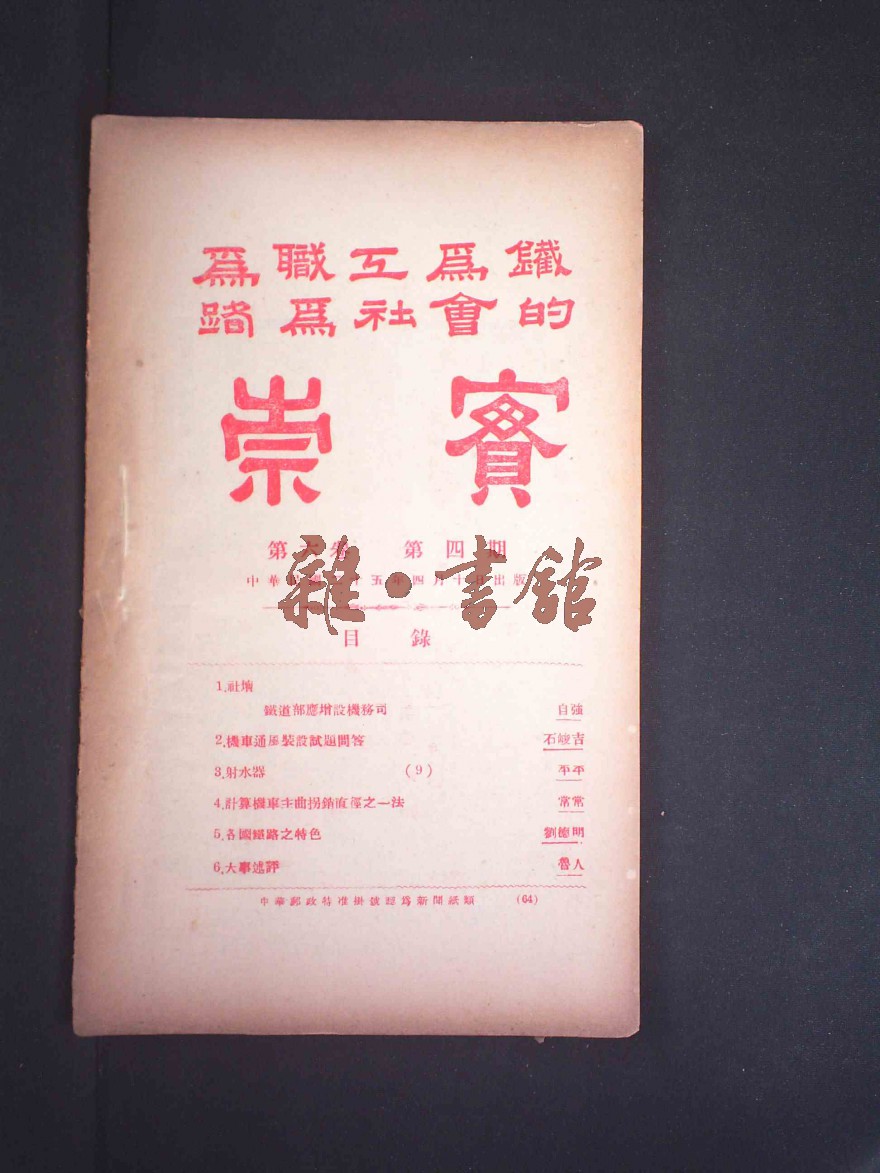 爲職工爲鐵
路爲社會的
崇實
第六卷 第四期
中華民國二十五年四月十日出版
雜·書館
目錄
1.社壇
鐵道部應增設機務司 自強
2.機車通風裝設試題問答 石峻吉
3.射水器 (9) 平平
4.計算機車主曲拐銷直徑之一法 常常
5.各國鐵路之特色 劉德明
6.大事述評 魯人
中華郵政特准掛號認爲新聞紙類 (64)